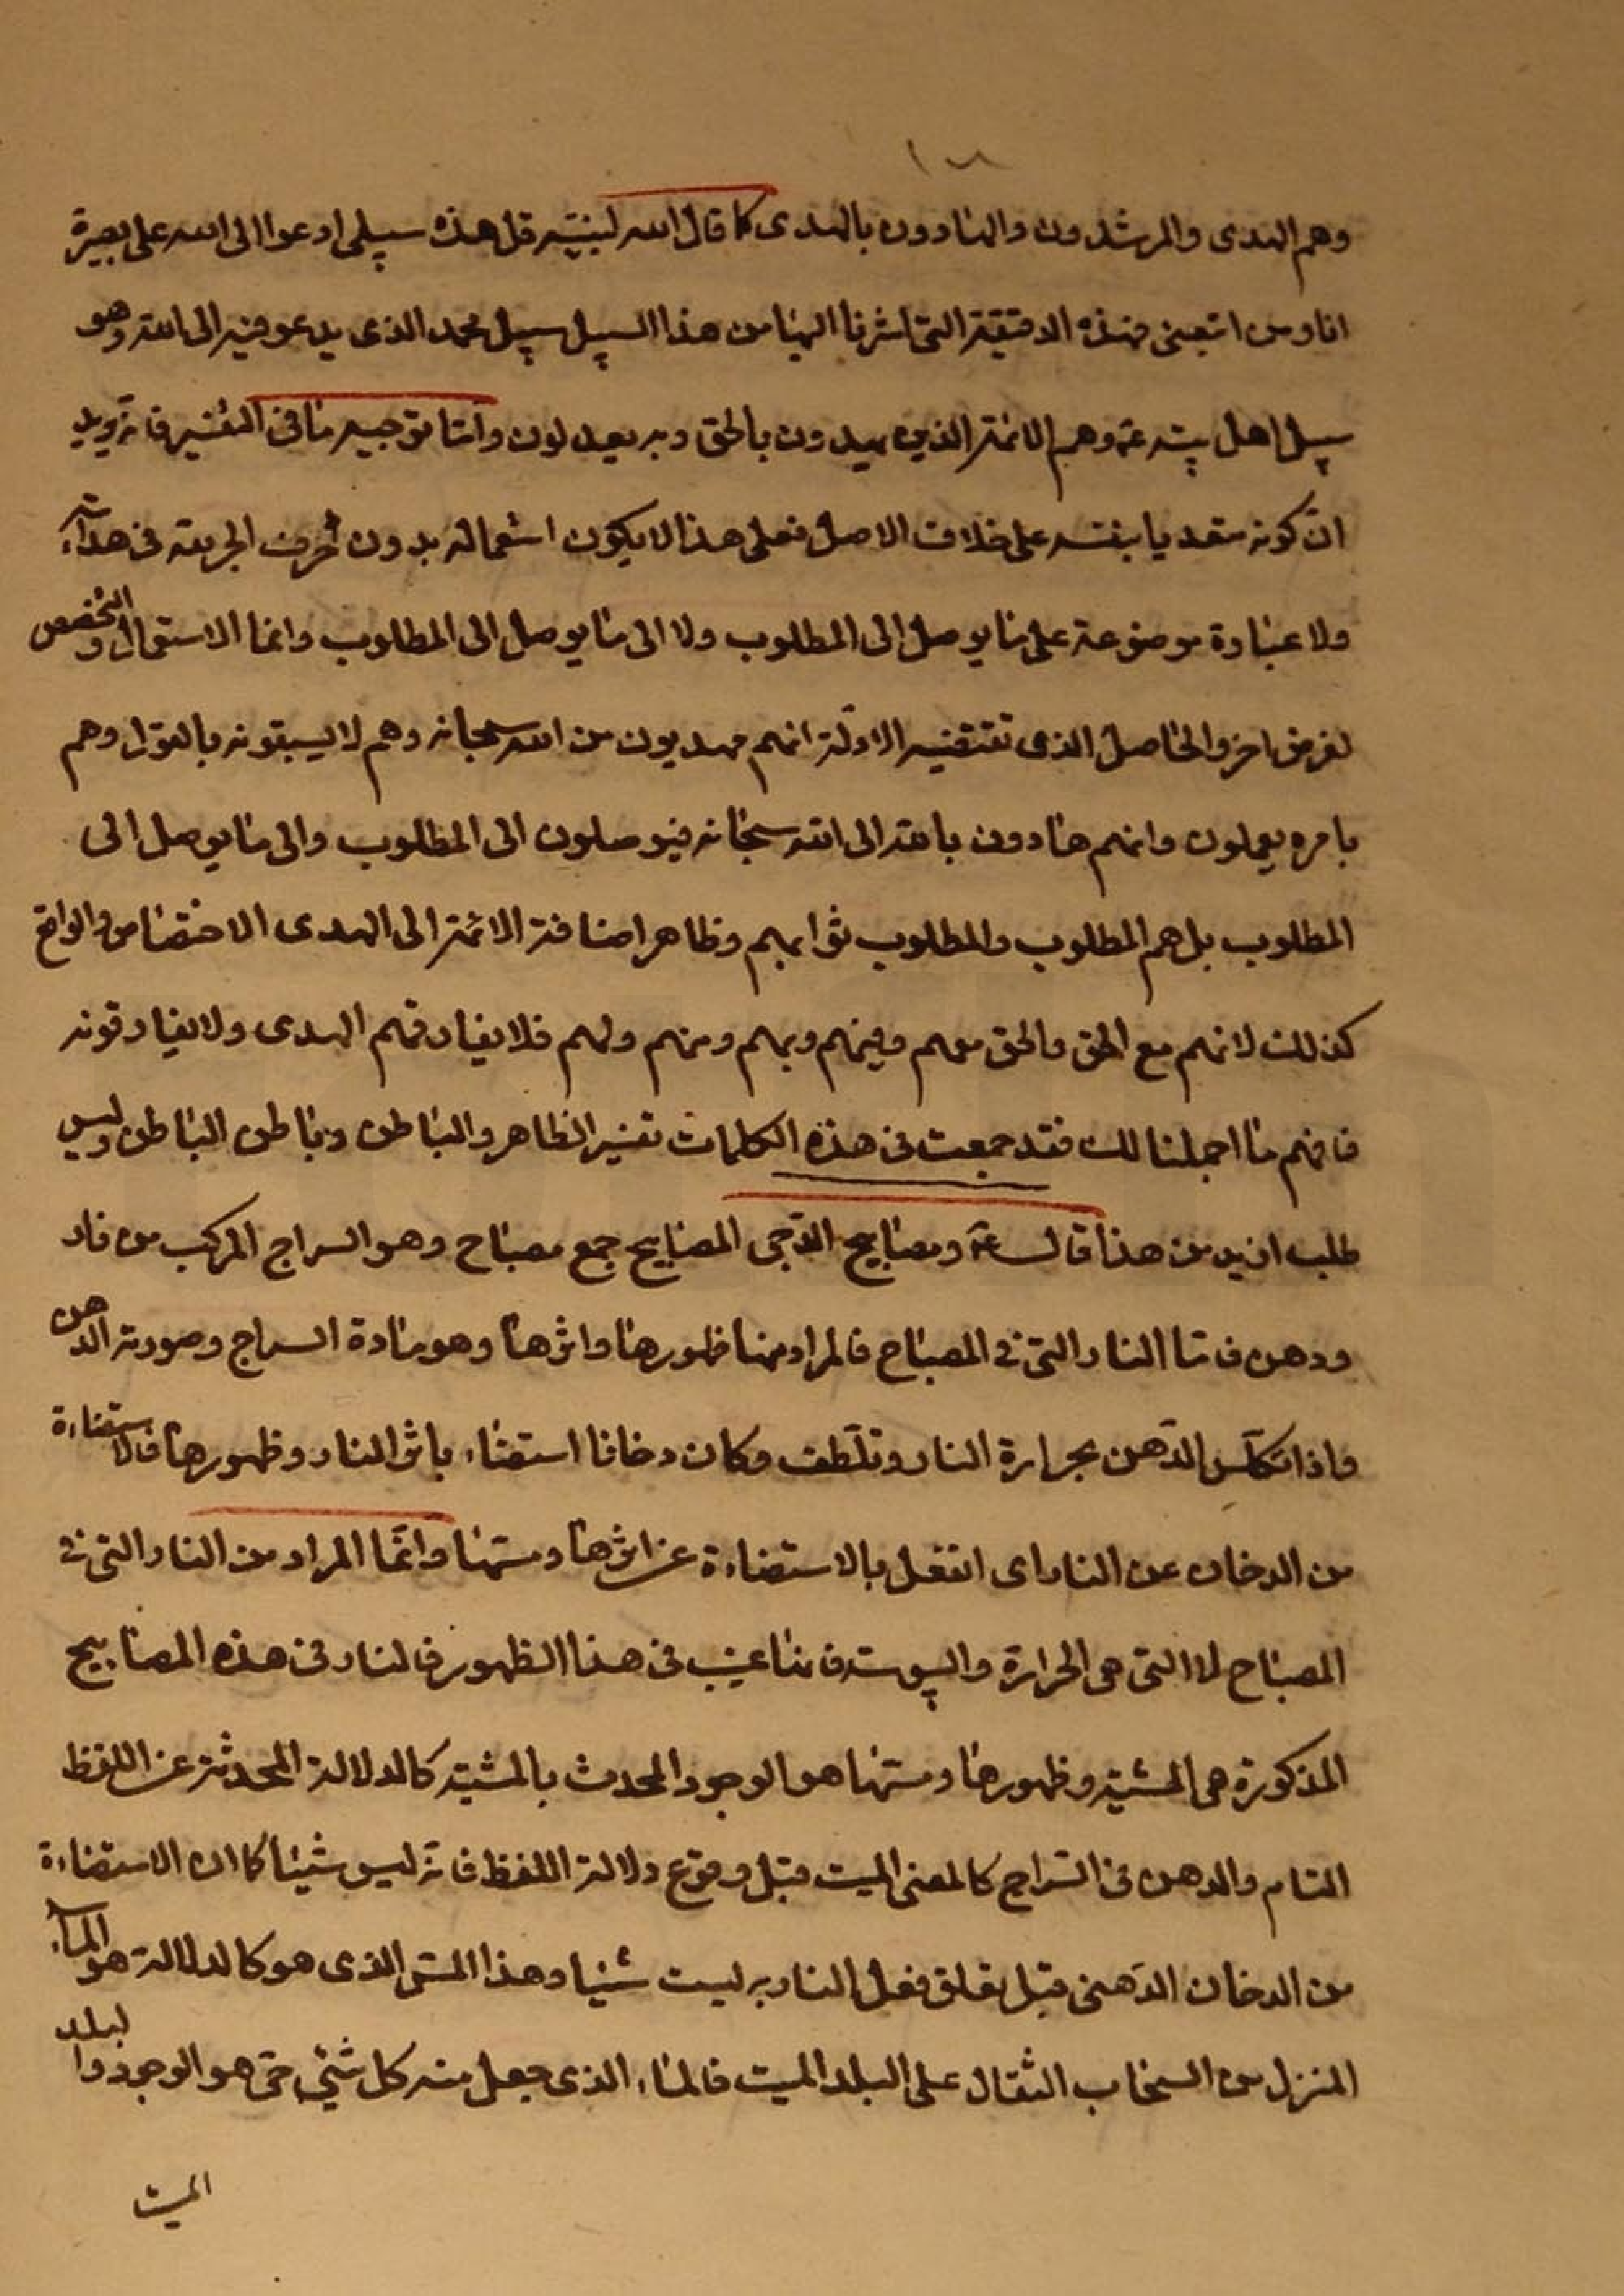 وهم الهدى والمرشدون والهادون بالهدى كما قال الله لنبيّه قل هذه سبيلى ادعوا الى الله على بصيرة
انا ومن اتبعنى فهذه الدقيقة التى اشرنا اليها من هذا السبيل سبيل محمد الذى يدعو فيه الى الله وهو
سبيل اهل بيته عۤ وهم الائمة الذين يهدون بالحق وبه يعدلون وامّا توجيه ما فى التفسير فانّه يريد
انّ كونه متعديا بنفسه على خلاف الاصل فعلى هذا لا يكون استعماله بدون الحرف الجر يدل فى هدايته
ولا عبادة موضوعة على ما يوصل الى المطلوب ولا الى ما يوصل الى المطلوب وانما الاستعمال والتخصص
لغرض اخر والحاصل الذى تقتضيه الادلّة انهم مهديون من الله سبحانه وهم لا يسبقونه بالقول وهم
بامره يعملون وانهم هادون بالله الى الله سبحانه فيوصلون الى المطلوب والى ما يوصل الى
المطلوب بل هم المطلوب والمطلوب ثوابهم وظاهر اضافة الائمة الى الهدى الاختصاص والواقع
كذلك لانهم مع الحق والحق معهم وفيهم وبهم ومنهم ولهم فلا يفارقهم الهدى ولا يفارقونه
فافهم ما اجملنا لك فقد جمعت فى هذه الكلمات تفسير الظاهر والباطن وباطن الباطن وليس
طلب ازيد من هذا قال عۤ ومصابيح الدّجى المصابيح جمع مصباح وهو السراج المركب من نار
ودهن فامّا النار التى فى المصباح فالمراد منها ظهورها واثرها وهو مادة السراج وصورته الدهن
واذا تكلّس الدّهن بحرارة النار وتلطّف وكان دخانا استضاء باثر النار وظهورها فالاستضاءة
من الدخان عن النار اى انفعل بالاستضاءة عن اثرها ومسّها وانّما المراد من النار التى فى
المصباح لا التى هى الحرارة واليبوسة فانها غيب فى هذا الظهور فالنار فى هذه المصابيح
المذكورة هى المشية وظهورها ومسّها هو الوجود المحدث بالمشية كالدلالة المحدثة عن اللفظ
التام والدهن فى السّراج كالمعنى الميت قبل وقوع دلالة اللفظ فانّه ليس شيئا كما ان الاستضاءة
من الدخان الدّهنى قبل تعلق فعل النار به ليست شيئا وهذا المسّ الذى هو كالدلالة هو الماء
المنزل من السحاب الثقال على البلد الميت فالماء الذى جعل منه كل شئ حى هو الوجود والبلد
الميت